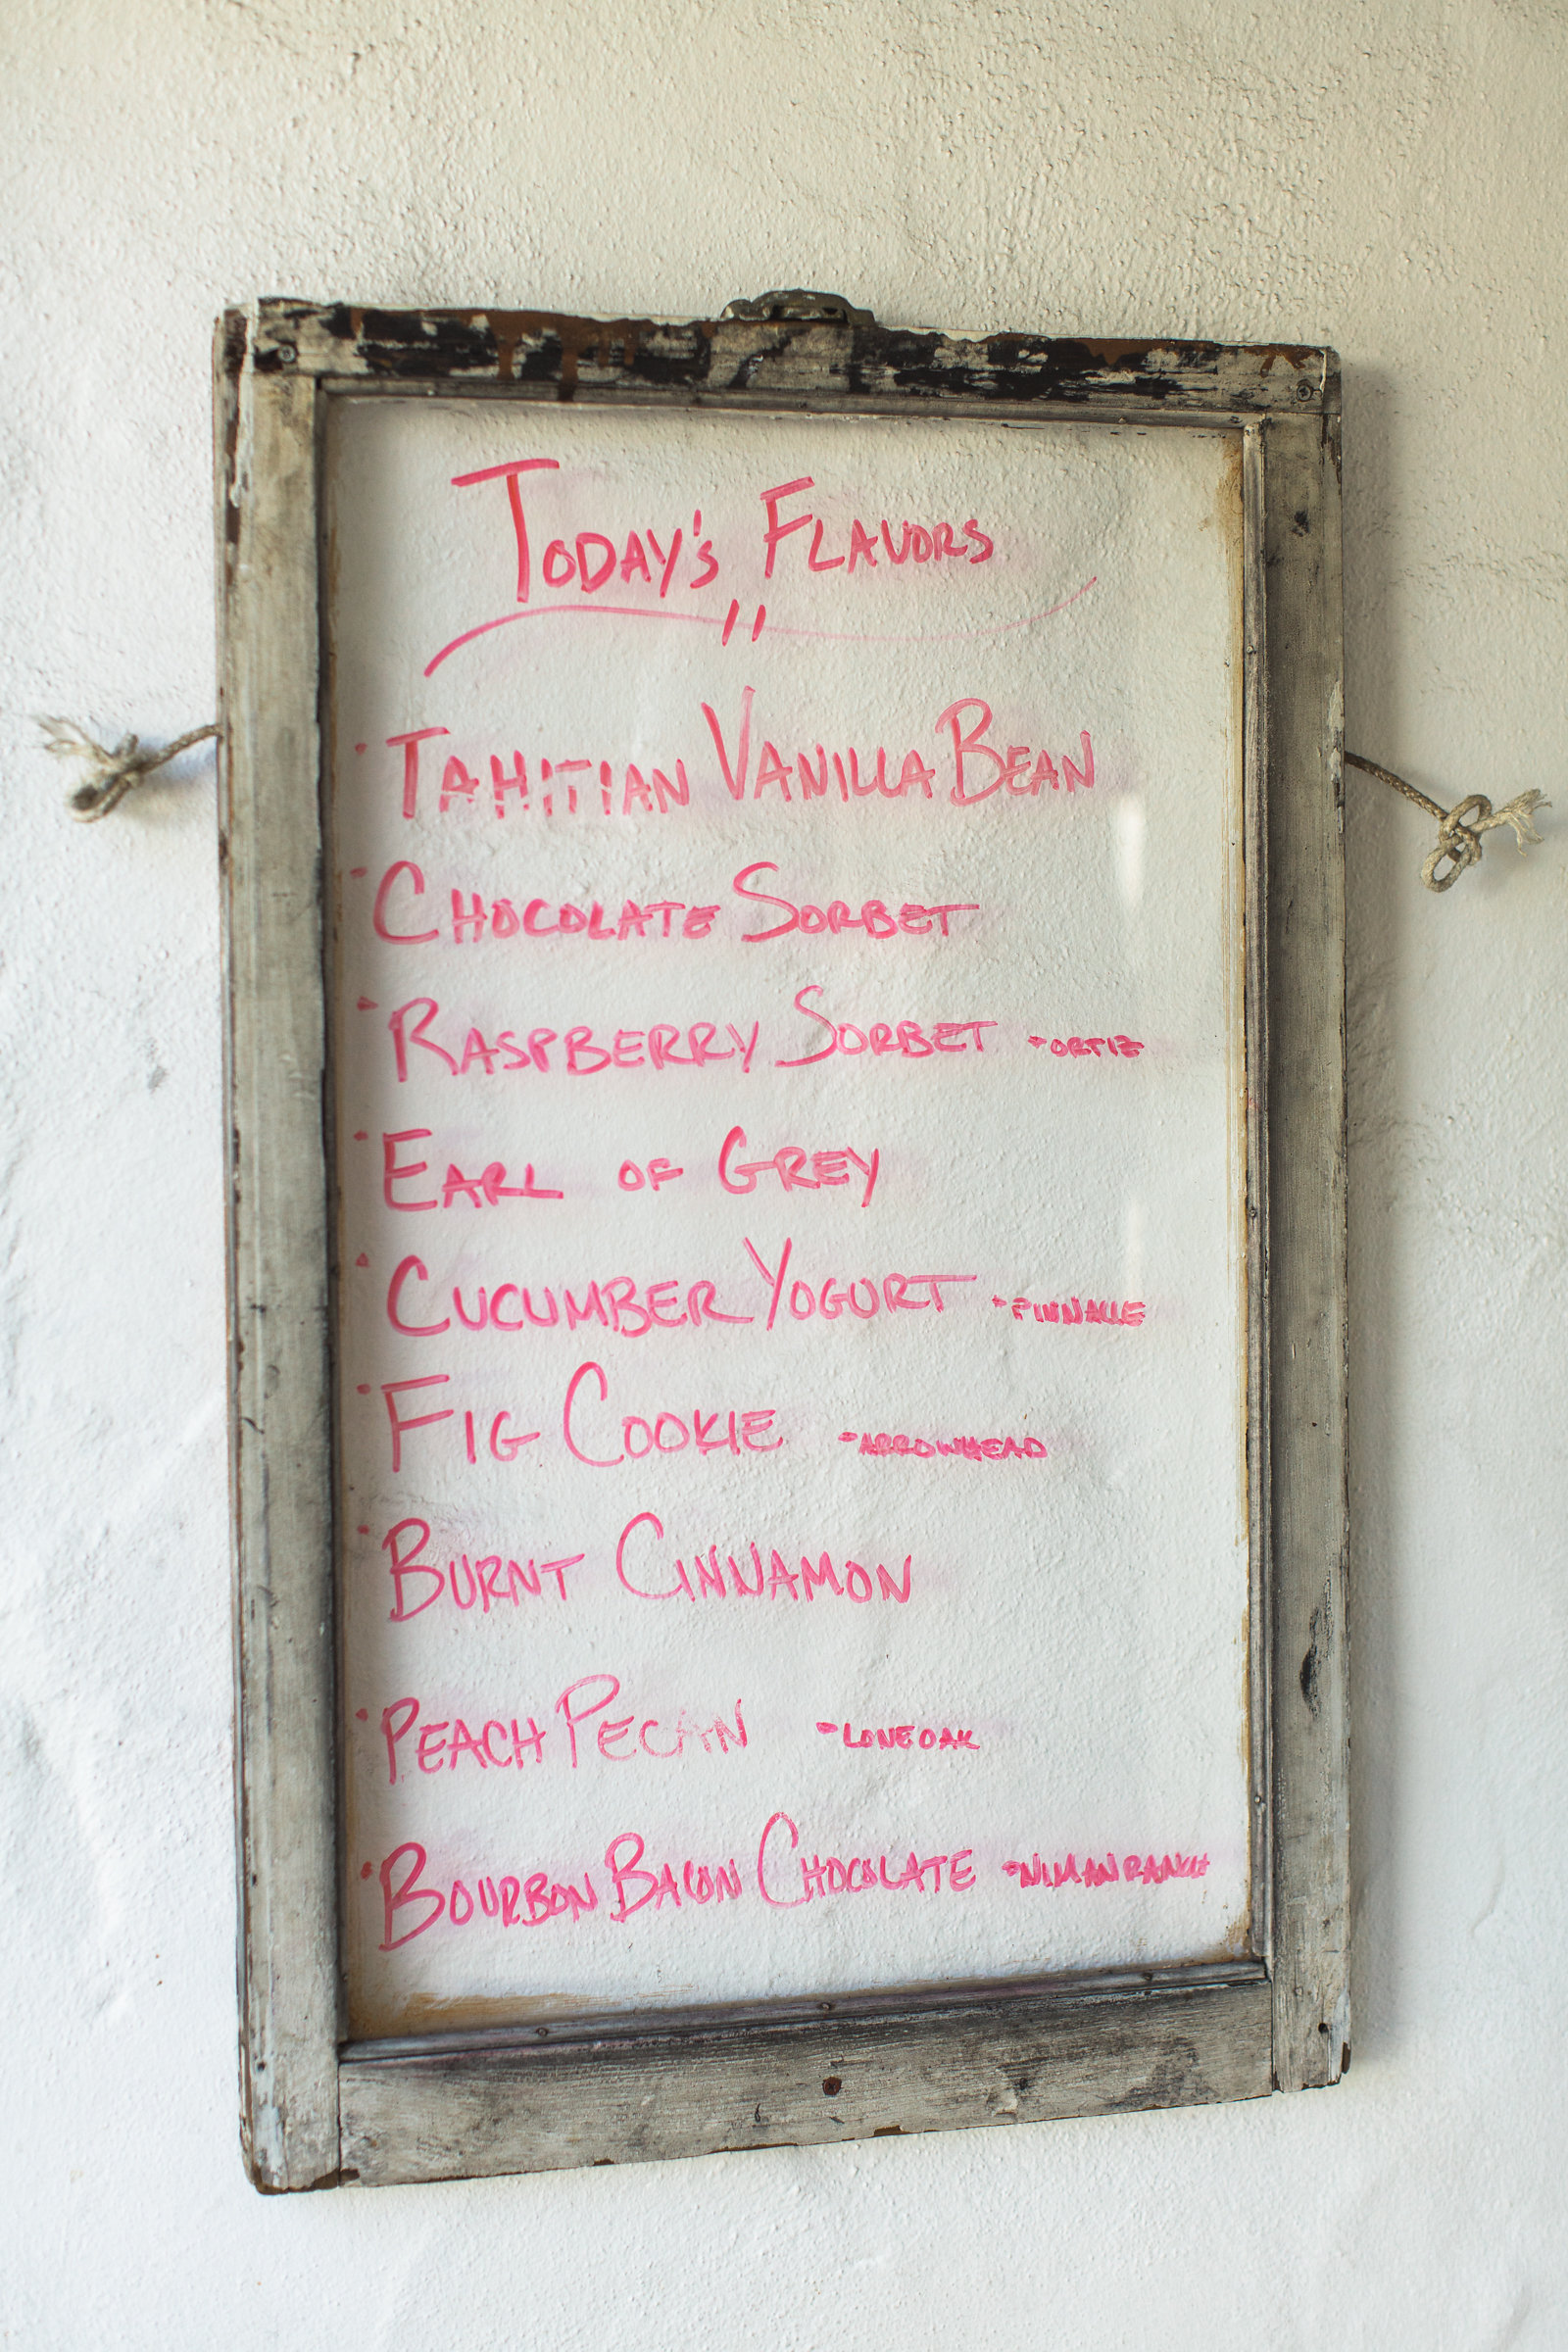 TODAY'S FLAVORS
"
• TAHITIAN VANILLA BEAN
• CHOCOLATE SORBET
• RASPBERRY SORBET -ORTIZ
• EARL OF GREY
• CUCUMBER YOGURT -PINNACLE
• FIG COOKIE -ARROWHEAD
• BURNT CINNAMON
• PEACH PECAN -LONEOAK
• BOURBON BACON CHOCOLATE -NIMAN RANCH